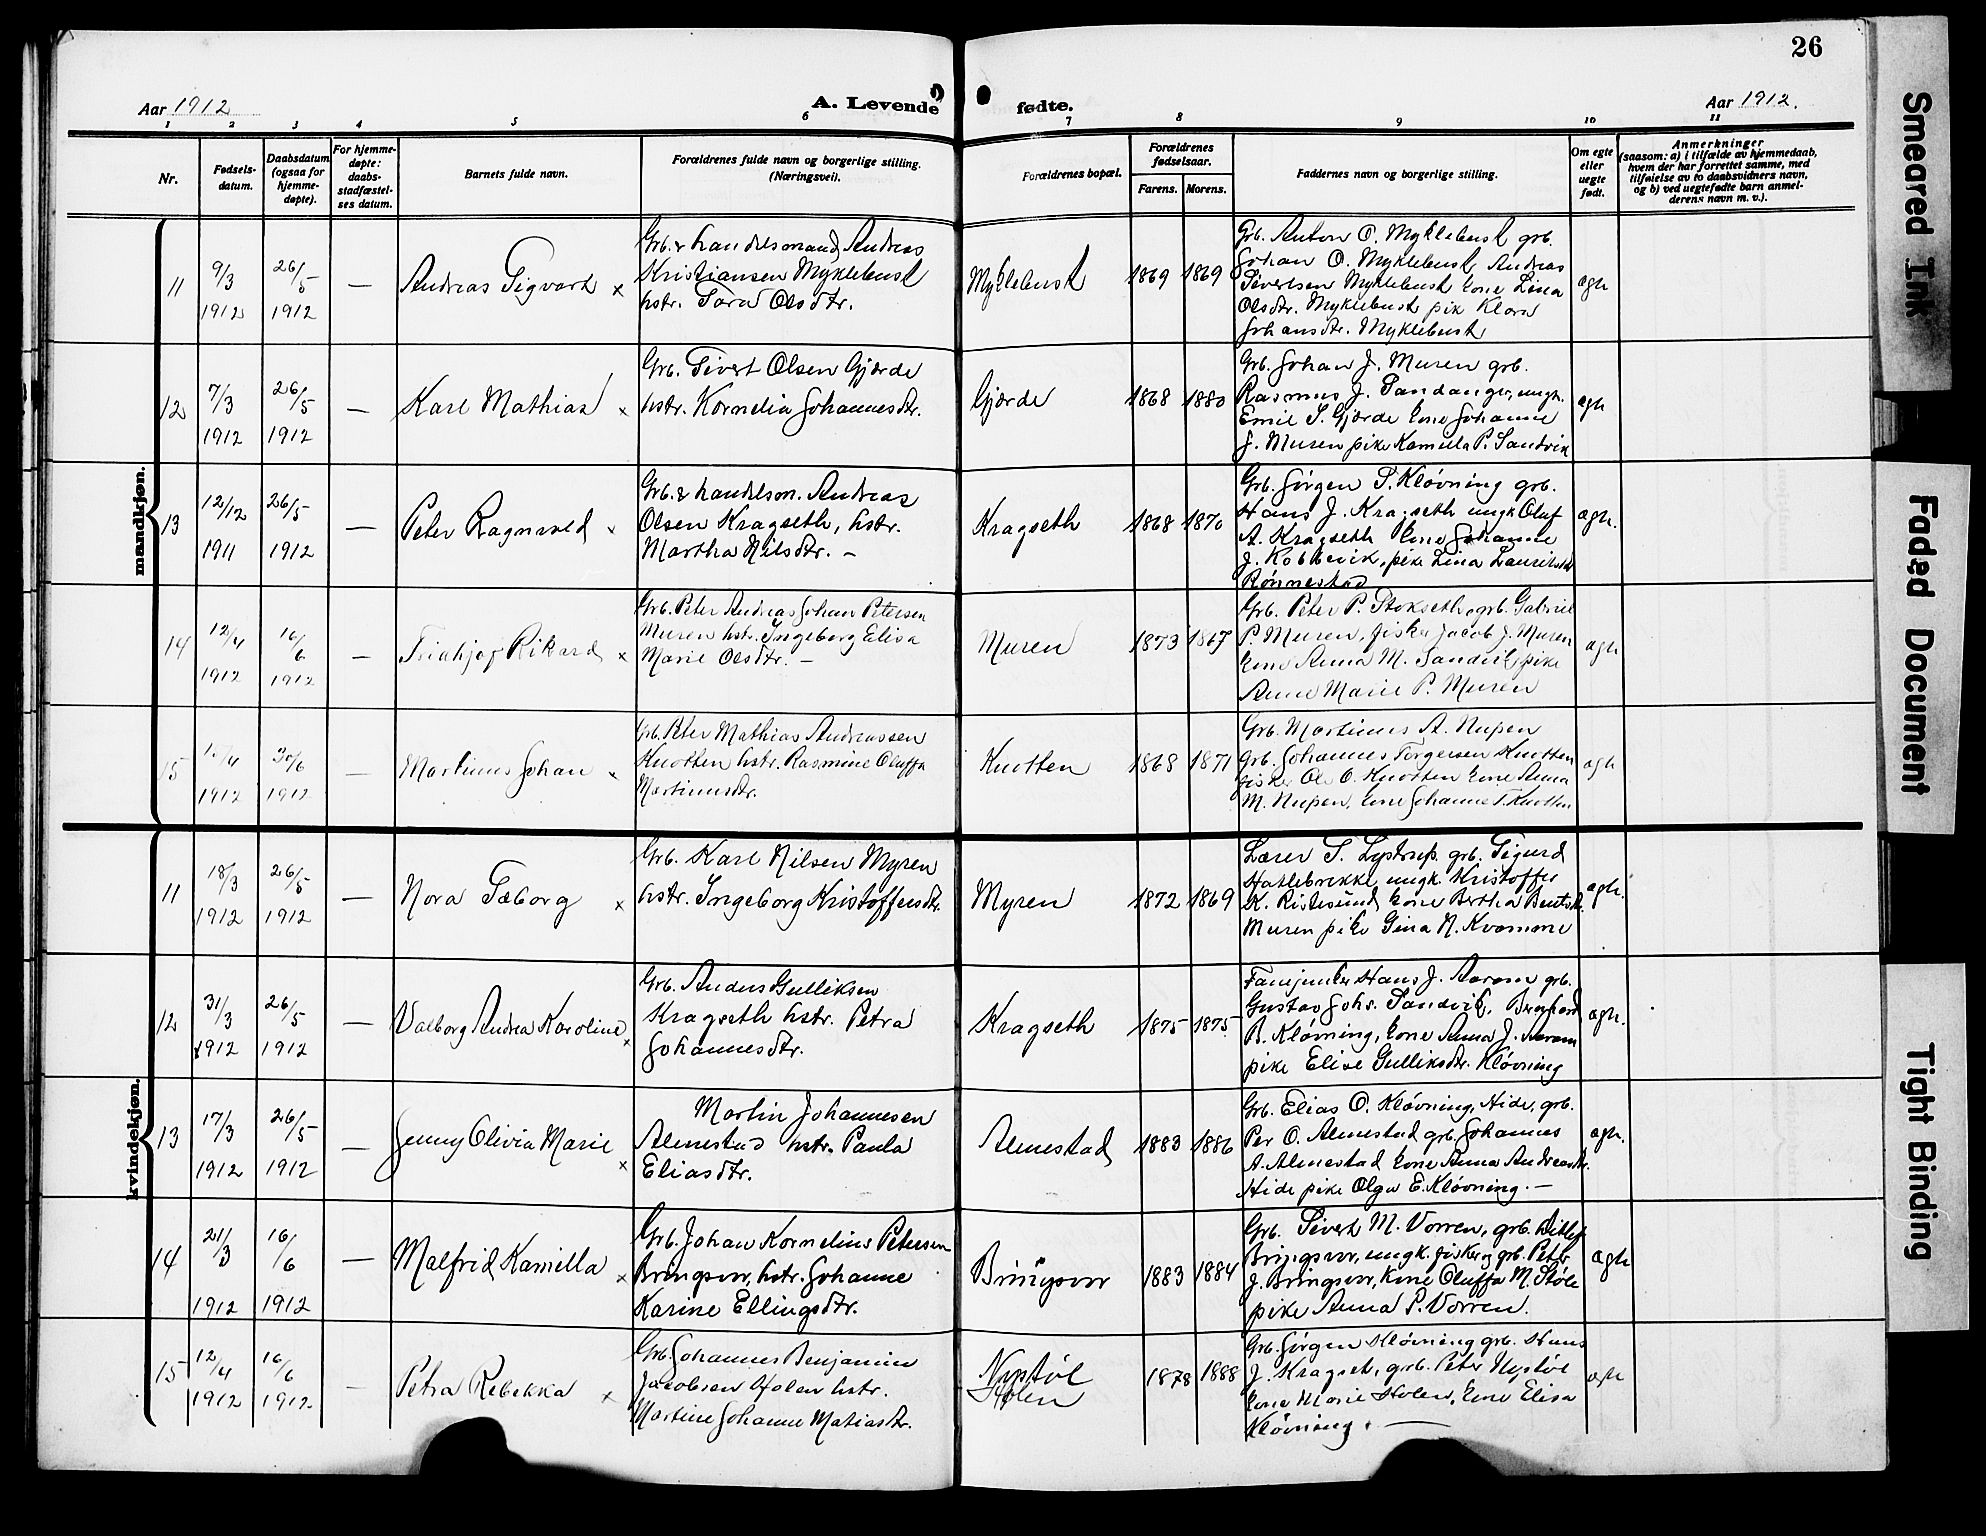 26
Aar 1912
A. Levende fødte.
Aar 1912.
1 2 3 4 5 6 7 8 9 10 11
Nr.
Fødsels-
datum.
Daabsdatum
(ogsaa for
hjemme-
døpte).
For hjemme-
døpte:
daabs-
stadfæstel-
ses datum.
Barnets fulde navn.
Forældrenes fulde navn og borgerlige stilling.
(Næringsvei).
Forældrenes bopæl.
Forældrenes
fødselsaar.
Farens. Morens.
Faddernes navn og borgerlige stilling.
Om egte
eller
uegte
født.
Anmerkninger
(saasom: a) i tilfælde av hjemmedaab,
hvem der har forrettet samme, med
tilføielse av to daabsvidners navn,
og b) ved uegtefødte barn anmel-
derens navn m. v.).
mandkjøn.
11
9/3
1912
26/5
1912
—
Andreas Sigvart x
Grb. & handelsmand Andreas
Kristiansen Myklebust
hstr. Tora Olsdtr.
Myklebust
1869 1869
Grb. Anton O. Myklebust grb.
Johan O. Myklebust, Andreas
Sivertsen Myklebust kone Lina
Olsdtr. Myklebust pike Klara
Johansdtr. Myklebust
egte
12
7/3
1912
26/5
1912
—
Karl Mathias x
Grb. Sivert Olsen Gjerde
hstr. Kornelia Johannesdtr.
Gjerde
1868 1880
Grb. Johan J. Muren grb.
Rasmus J. Sandanger, ungk.
Emil S. Gjerde kone Johanne
J. Muren pike Kamella P. Sandvik
egte
13
12/12
1911
26/5
1912
—
Peter Ragnvald x
Grb. & handelsm. Andreas
Olsen Kragseth, hstr.
Martha Nilsdtr. —
Kragseth
1868 1870
Grb. Jørgen P. Kløvning grb.
Hans J. Kragseth ungk Oluf
A. Kragseth kone Johanne
J. Kobbevik, pike Lina Lauritsdtr
Rønnestad
egte.
14
12/4
1912
16/6
1912
—
Fridhjof Rikard x
Grb. Peter Andreas Johan Petersen
Muren hstr. Ingeborg Elisa
Marie Olsdtr. —
Muren
1873 1867
Grb. Peter P. Stokseth, grb. Gabriel
P. Muren, fisker Jacob J. Muren
kone Anna M. Sandvik, pike
Anne Marie P. Muren
egte
15
1912
30/6
1912
—
Martinus Johan x
Grb. Peter Mathias Andreassen
Knotten hstr. Rasmine Oluffa
Martinusdtr.
Knotten
1868 1871
Grb. Martinus A. Nupen
grb. Johannes Torgersen Knotten
fisker Ole O. Knotten kone Anna
M. Nupen, kone Johanne T. Knotten
egte
kvindekjøn.
11
18/3
1912
26/5
1912
—
Nora Tæborg x
Grb. Karl Nilsen Myren
hstr. Ingeborg Kristoffersdtr.
Myren
1872 1869
Lærer S. Lystrup. grb. Sigurd
Hatlebrekke ungk. Kristoffer
K. Ristesund kone Bertha Bentsdtr.
Muren pike Gina N. Kvamme
egte.
12
31/3
1912
26/5
1912
—
Valborg Andrea Karoline x
Grb. Anders Gulliksen
Kragseth hstr. Petra
Johannesdtr.
Kragseth
1875 1875
Fanejunker Hans J. Aaram grb.
Gustav Johs. Sandvik, Bernhard
B. Kløvning, kone Anna J. Aaram
pike Elise Gulliksdtr. Kløvning
egte.
13
17/3
1912
26/5
1912
—
Jenny Olivia Marie x
Martin Johannesen
Almestad hstr. Paula
Eliasdtr.
Almestad
1883 1886
Grb. Elias O. Kløvning, Hide, grb.
Per O. Almestad grb. Johannes
A. Almestad kone Anna Andreasdtr.
Hide pike Olga E. Kløvning. —
egte.
14
21/3
1912
16/6
1912
—
Malfrid Kamilla x
Grb. Johan Kornelius Petersen
Bringsvor, hstr. Johanne
Karine Ellingsdtr.
Bringsvor
1883 1884
Grb. Sivert M. Vorren, grb. Ditlef
Bringsvor, ungk. fisker og grb. Peter
J. Bringsvor, kone Oluffa M. Støle
pike Anna P. Vorren.
egte
15
12/4
1912
16/6
1912
—
Petra Rebekka x
Grb. Johannes Benjamin
Jacobsen Holen hstr.
Martine Johanne Matiasdtr.
Nystøl
Holen
1878 1888
Grb. Jørgen Kløvning grb. Hans
J. Kragset, grb. Peter Nystøl
kone Marie Holen, kone Elisa
Kløvning. —
egte
Smeared Ink
Faded Document
Tight Binding